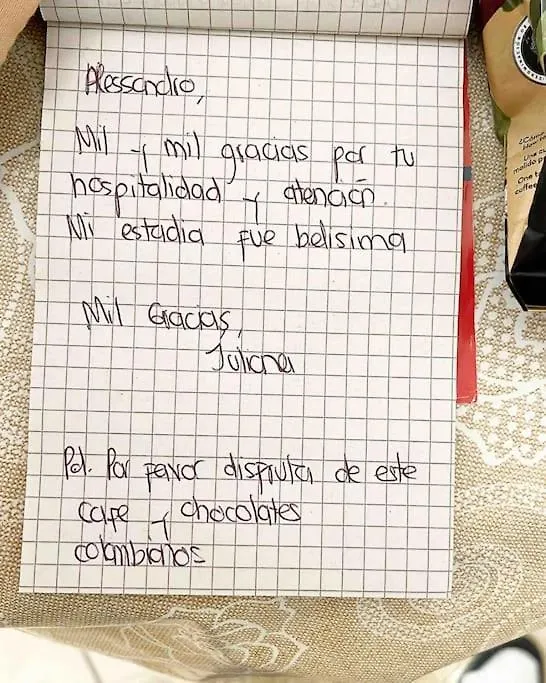 Alessandro,
Mil y mil gracias por tu
hospitalidad y atención.
Mi estadia fue belisima
Mil Gracias,
Juliana
Pd. Por favor disfruta de este
cafe y chocolates
colombianos
¿Cómo
molido p
One t
coffee